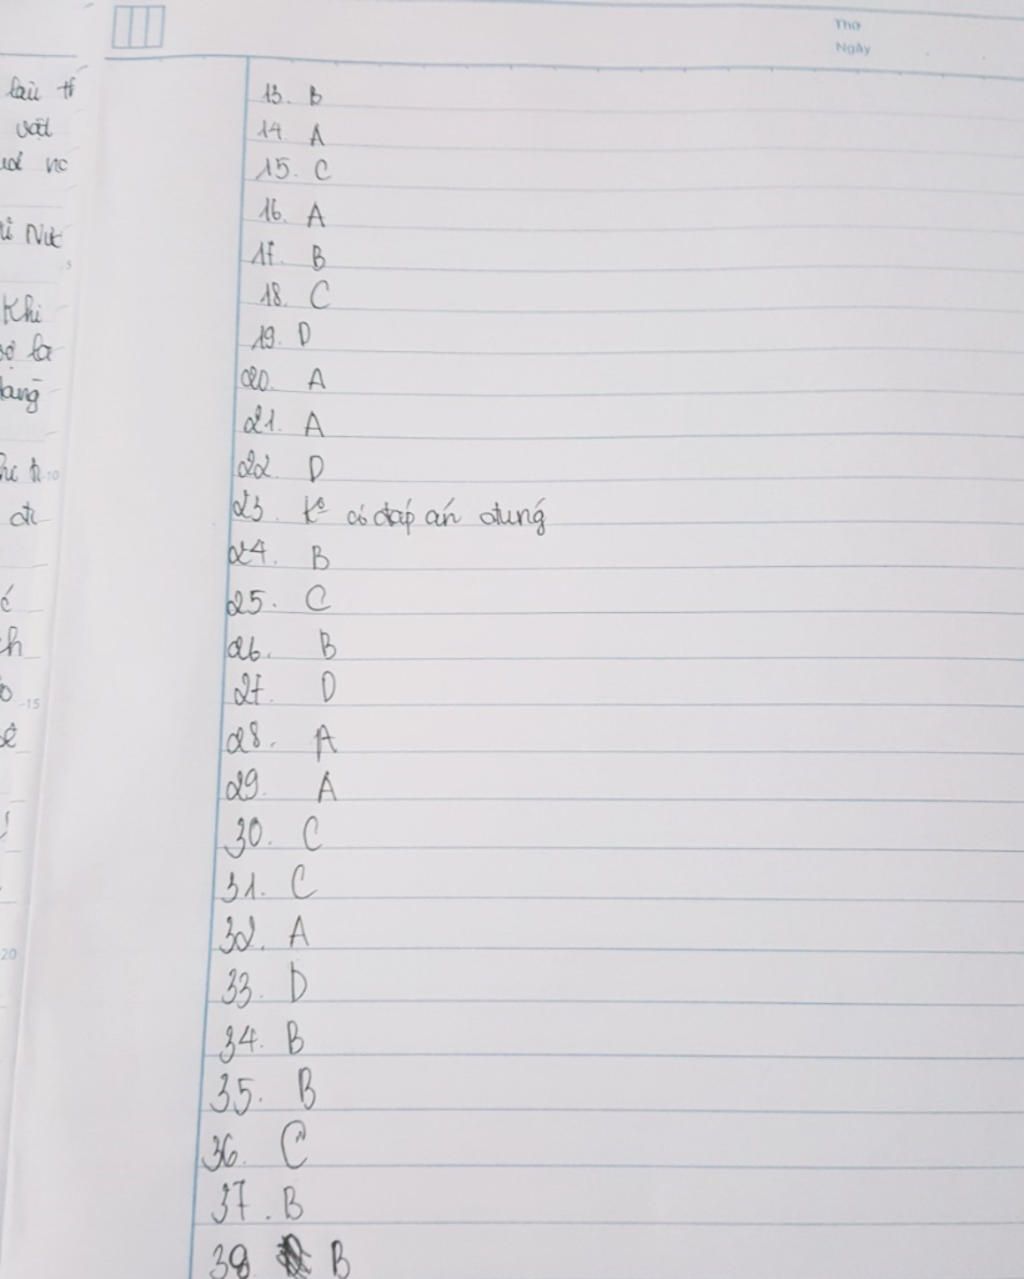 Thứ
Ngày
lại
vật
nc
Khi
13. B
14 A
15. C
16. A
17. B
18. C
19. D
20. A
21. A
22. D
23. ko có đáp án đúng
24. B
25. C
26. B
27. D
28. A
29. A
30. C
31. C
32. A
33. D
34. B
35. B
36. C
37. B
38 B
5
10
15
20